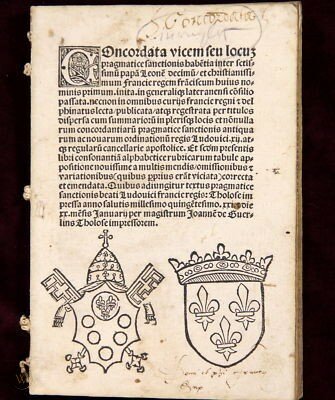 Concordata
Concordata vicem seu locuz
pragmatice sanctionis habētia inter sctis
simū papā Leonē decimū/ et christianissi
mum franciē regem frāciscum huius nomi
nis primum. inita. in generaliqz lateranensi cōsilio
passata. necnon in omnibus curijs francie regni z del
phinatus lecta. publicata/ atqz regestrata per titulos
dispersa cum summarijs in plerisqz locis et ōnnulla
rum concordantiarū pragmatice sanctionis antiqua
rum ac nouarum ordinationū regis Ludouici. xij. at
qz regularū cancellarie apostolice. Et secōm presentis
libri consonantiā alphabetice rubricarum tabule ap
positione nouissime a multis mendis. omissionibus z
variationibus (quibus pprius erāt viciata) correcta
et emendata. Quibus adiungitur textus pragmatice
sanctionis beati Ludouici francie regis: Tholose im
pressa anno salutis millesimo quingētesimo.
mēsis Januarij per magistrum Joannē de Guer
lins Tholose impressorem.